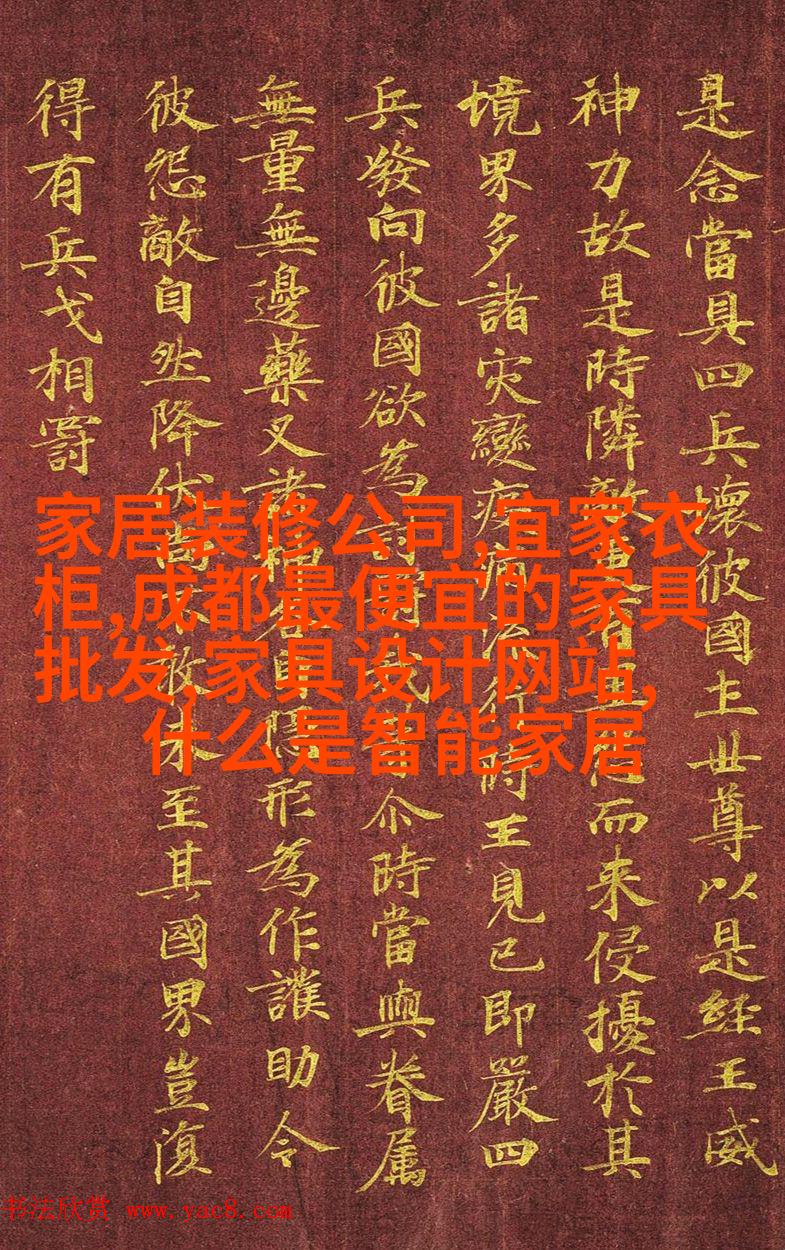 是念當具四兵壞彼國土世尊以是經王威
神力故是時隣敵更有異怨而来侵擾於其
境界多諸灾變疫病流行時王見已即嚴四
兵發向彼國欲為討罸我等尒時當與眷属
無量無邊藥叉諸神各自隱形為作護助令
彼怨敵自然降伏尚不敢来至其國界豈復
得有兵戈相罸
家居装修公司,宜家衣
柜,成都最便宜的家具
批发,家具设计网站,
什么是智能家居
书法欣赏 www.yac8.com